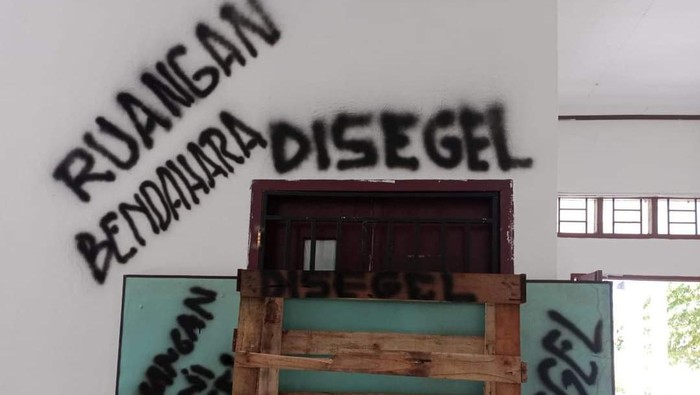 RUANGAN
BENDAHARA
DISEGEL
DISEGEL
ANGAN
GEL